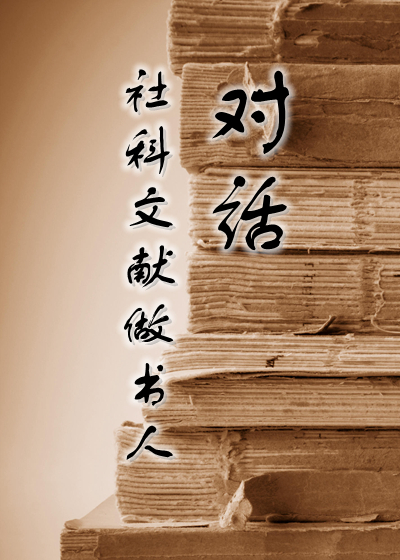 对话
社科文献做书人